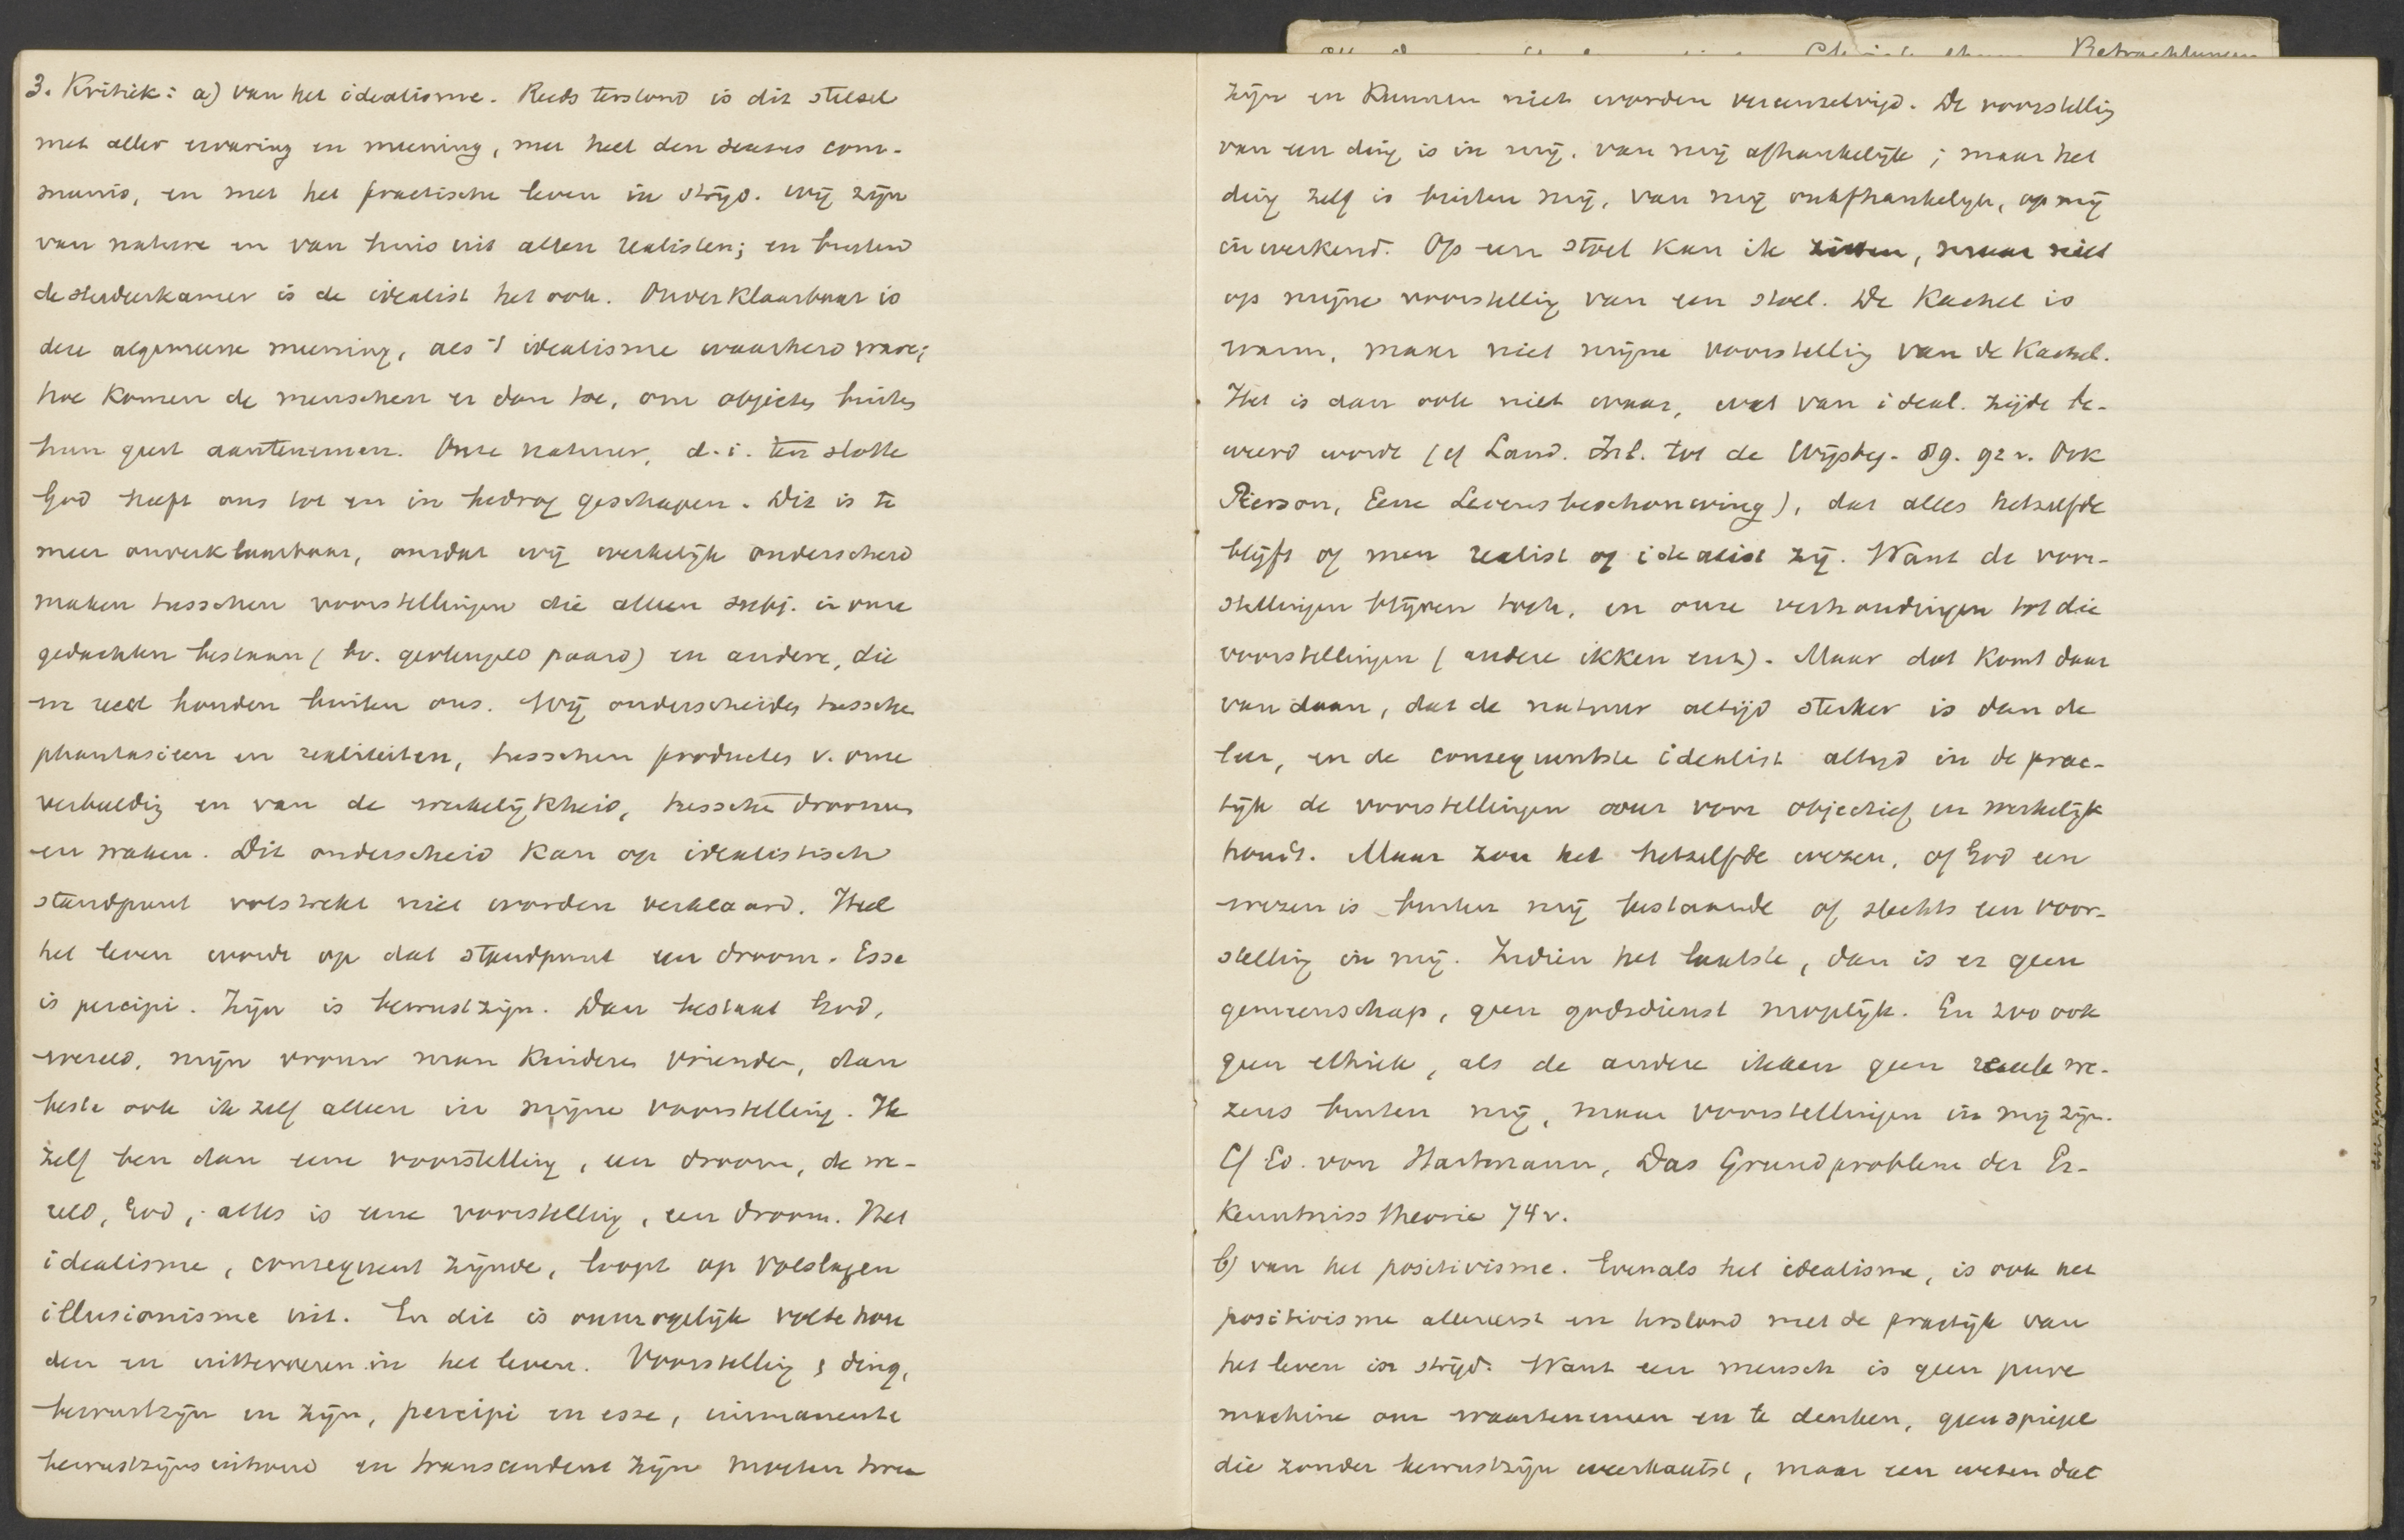 3. Kritiek: a) van het idealisme. Reeds terstond is dit stelsel
met aller ervaring en meening, met heel den sensus com-
munis, en met het practische leven in strijd. Wij zijn
van nature en van huis uit allen realisten; en buiten
de studeerkamer is de idealist het ook. Onverklaarbaar is
deze algemeene meening, als 't idealisme waarheid ware;
hoe komen de menschen er dan toe, om objecten buiten
hun geest aantenemen. Onze natuur, d.i. ten slotte
God heeft ons tot en in bedrog geschapen. Dit is te
meer onverklaarbaar, omdat wij werkelijk onderscheid
maken tusschen voorstellingen die alleen subj. in onze
gedachten bestaan (bv. gevleugeld paard) en andere, die
we reëel houden buiten ons. Wij onderscheiden tusschen
phantasieen en realiteiten, tusschen producten v. onze
verbeeldig en van de werkelijkheid, tusschen droomen
en waken. Dit onderscheid kan op idealistisch
standpunt volstrekt niet worden verklaard. Heel
het leven wordt op dat standpunt een droom. Esse
is percipi. Zijn is bewustzijn. Dan bestaat God,
wereld, mijn vrouw man kinderen vrienden, dan
besta ook ik zelf alleen in mijne voorstelling. Ik
zelf ben dan eene voorstelling, een droom, de we-
reld, God, alles is eene voorstellig, een droom. Het
idealisme, consequent zijnde, loopt op volslagen
illusionisme uit. En dit is onmogelijk vol te hou
den en uittevoeren in het leven. Voorstellig & ding,
bewustzijn en zijn, percipi en esse, immanente
bewustzijnsinhoud en transcendent zijn moeten twee
zijn en kunnen niet worden vereenzelvigd. De voorstellig
van een ding is in mij, van mij afhankelijk; maar het
ding zelf is buiten mij, van mij onafhankelijk, op mij
inwerkend. Op een stoel kan ik zitten, maar niet
op mijne voorstellig van een stoel. De kachel is
warm, maar niet mijne voorstellig van de kachel.
Het is dan ook niet waar, wat van ideal. zijde be-
weerd wordt (cf Land. Inl. tot de Wijsbeg. 89. 92 v. Ook
Pierson, Eene Levensbeschouwing), dat alles hetzelfde
blijft of men realist of idealist zij. Want de voor-
stellingen blijven toch, en onze verhoudingen tot die
voorstellingen (andere ikken enz). Maar dat komt daar
van daan, dat de natuur altijd sterker is dan de
leer, en de consequentste idealist altijd in de prac-
tijk de voorstellingen weer voor objectief en werkelijk
houdt. Maar zou het hetzelfde wezen, of God een
wezen is buiten mij bestaande of slechts een voor-
stellig in mij. Indien het laatste, dan is er geen
gemeenschap, geen godsdienst mogelijk. En zoo ook
geen ethiek, als de andere ikken geen reeële we-
zens buiten mij, maar voorstellingen in mij zijn.
Cf Ed. von Hartmann, Das Grundproblem der Er-
kenntnisstheorie 74 v.
b) van het positivisme. Evenals het idealisme, is ook het
positivisme allereerst en terstond met de practijk van
het leven in strijd. Want een mensch is geen pure
machine om waartenemen en te denken, geen spiegel
die zonder bewustzijn weerkaatst, maar een wezen dat
Betrachtungen